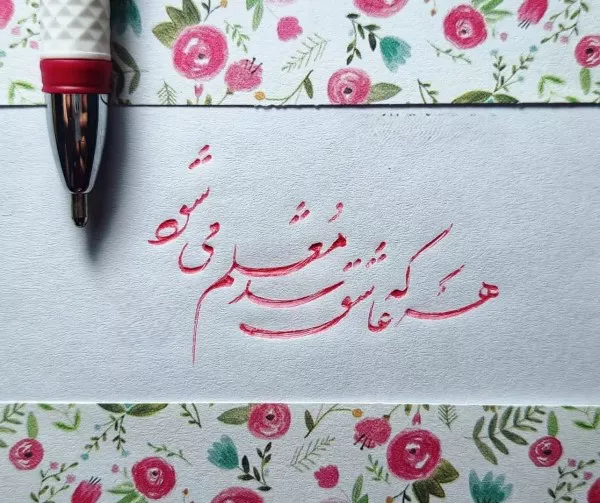 هَر که عاشق شد مُعلم می شود